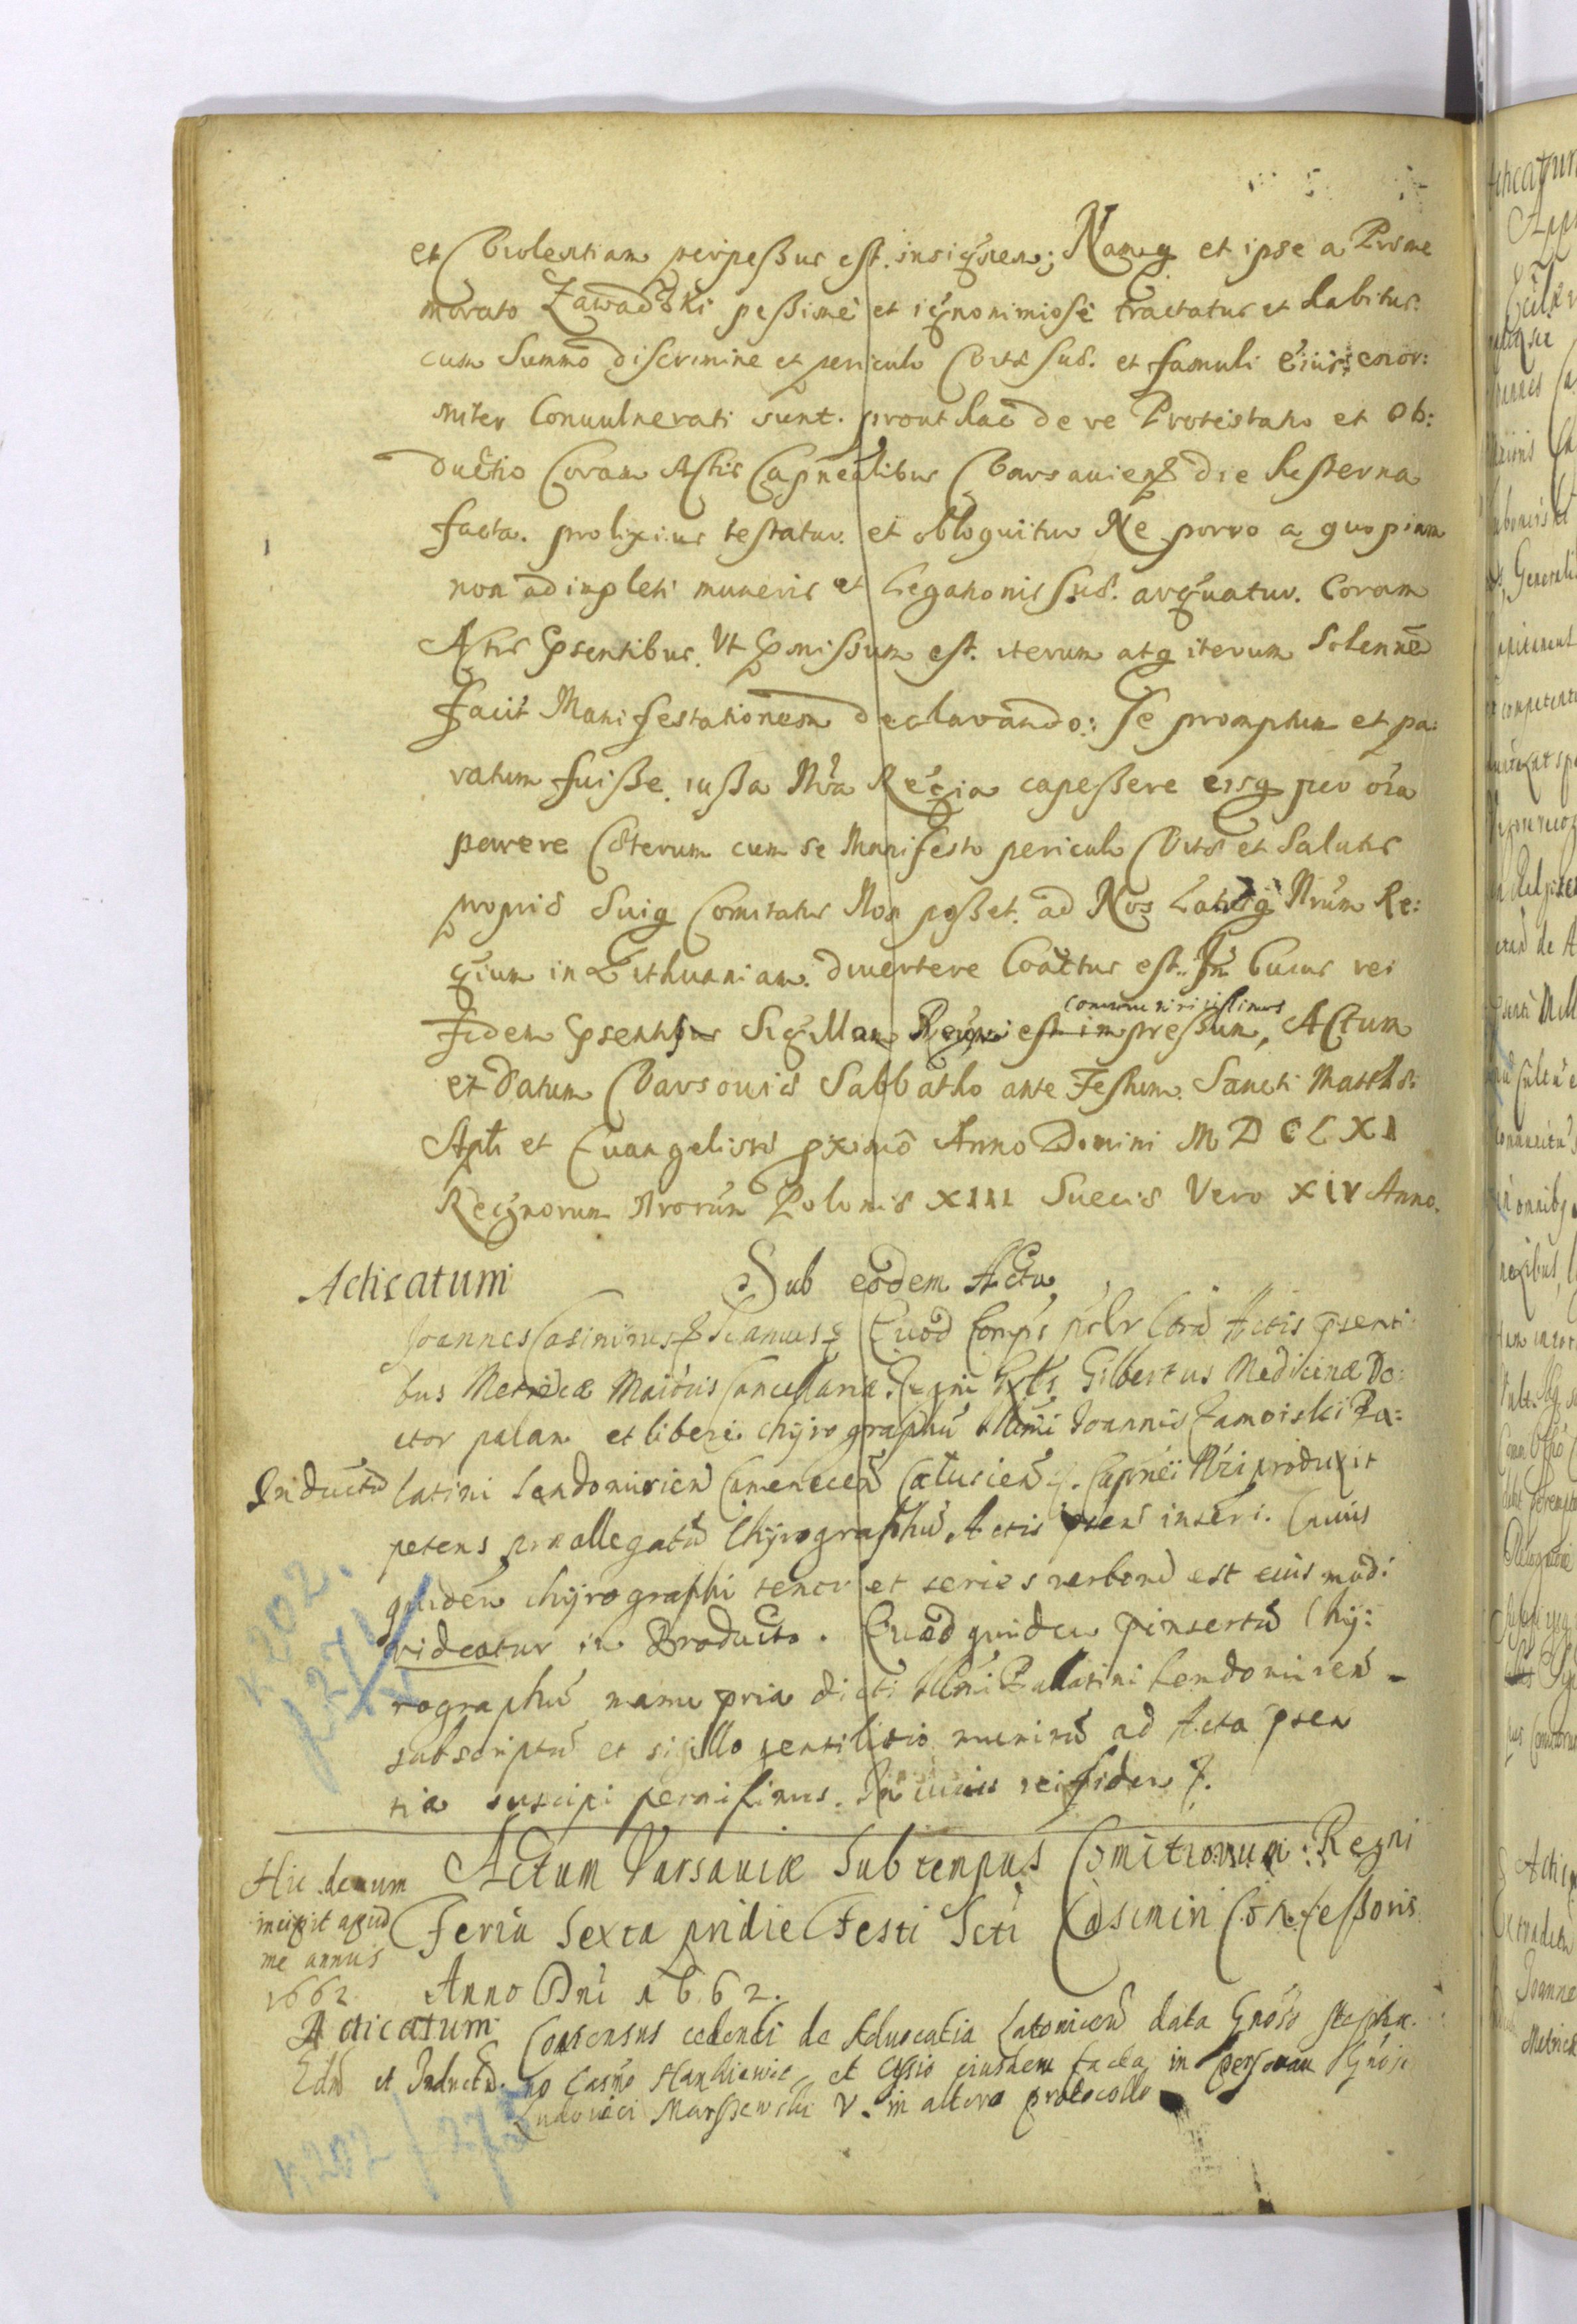 et Violentiam perpeßus est. insignem; Namq et ipse a Prime
morato Zawadzki peßimé et ignonimiosé tractatur et habitus.
cum Summo discrimine et periculo Vitæ suæ. et famuli eius enor:
miter Conuulnerati sunt. prout hac de re Protestatio et Ob:
ductio Coram Actis Capnealibus Varsauien die hesterna
facta. prolixius testatur. et obloquitur Ne porro a quopiam
non adimpleti muneris et Legationis suæ. arguatur. Coram
Actis psentibus. Ut pmissum est. iterum atq iterum Solenne
facit Manifestationem declarando: Se promptum et pa:
ratum fuiße. iußa Nra Regia capeßere eisq per oia
parere Cæterum cum se Manifesto periculo Vitæ et Salutis
propriæ Suiq Comitatus Non poßet. ad Nos Nrum Re:
gium in Lithuaniam. diuertere Coactus est. In Cuius rei
communiri iussimus
Fidem psentibus Sigillum Regni est impressum, Actum
et Datum Varsouiæ Sabbatho ante Festum. Sancti Matthæi
Apli et Euangelistæ pximo Anno Domini MDCLXI
Regnorum Nrorum Poloniæ XIII Sueciæ Vero XIV Anno.
Acticatum Sub eodem Actu
Joannes Casimirus Quod Comps psr Cora Actis psenti
bus Metricæ Maioris Cancellariæ Regni Gilbertus Medicinæ Do:
ctor palam et libere chyrographu Illmi Joannis Zamoiski Pa:
Inductu latini Sendomirien Camenecen Caluscien Capnei Nri produxit
petens præallegatu Chyrographu Actis psen inseri. Cuius
quidem chyrographi tenor et series verboru est eius modi
videatur in Producto. Quod quidem pinsertu Chy:
rographu manu pria dicti Illmi Palatini Sendomiren
subscriptu et sigillo gentilitio munitu ad Acta psen
tia suscipi permisimus. In cuius rei fidem
Hic demum Actum Varsauiæ Sub tempus Comitiorum Regni
incipit apud Feria Sexta pridie Festi Scti Casimiri Confeßoris
me annus
1662. Anno Dni 1662.
Acticatum Consensus cedendi de Aduocatia data Gnoso Stepha.
et Inductu. no Hankiewic et Cessio eiusdem facta in personam Gnosi
Ludouici Marszewski V. in altero protocollo
k 202.
f 271
k. 202 f 272